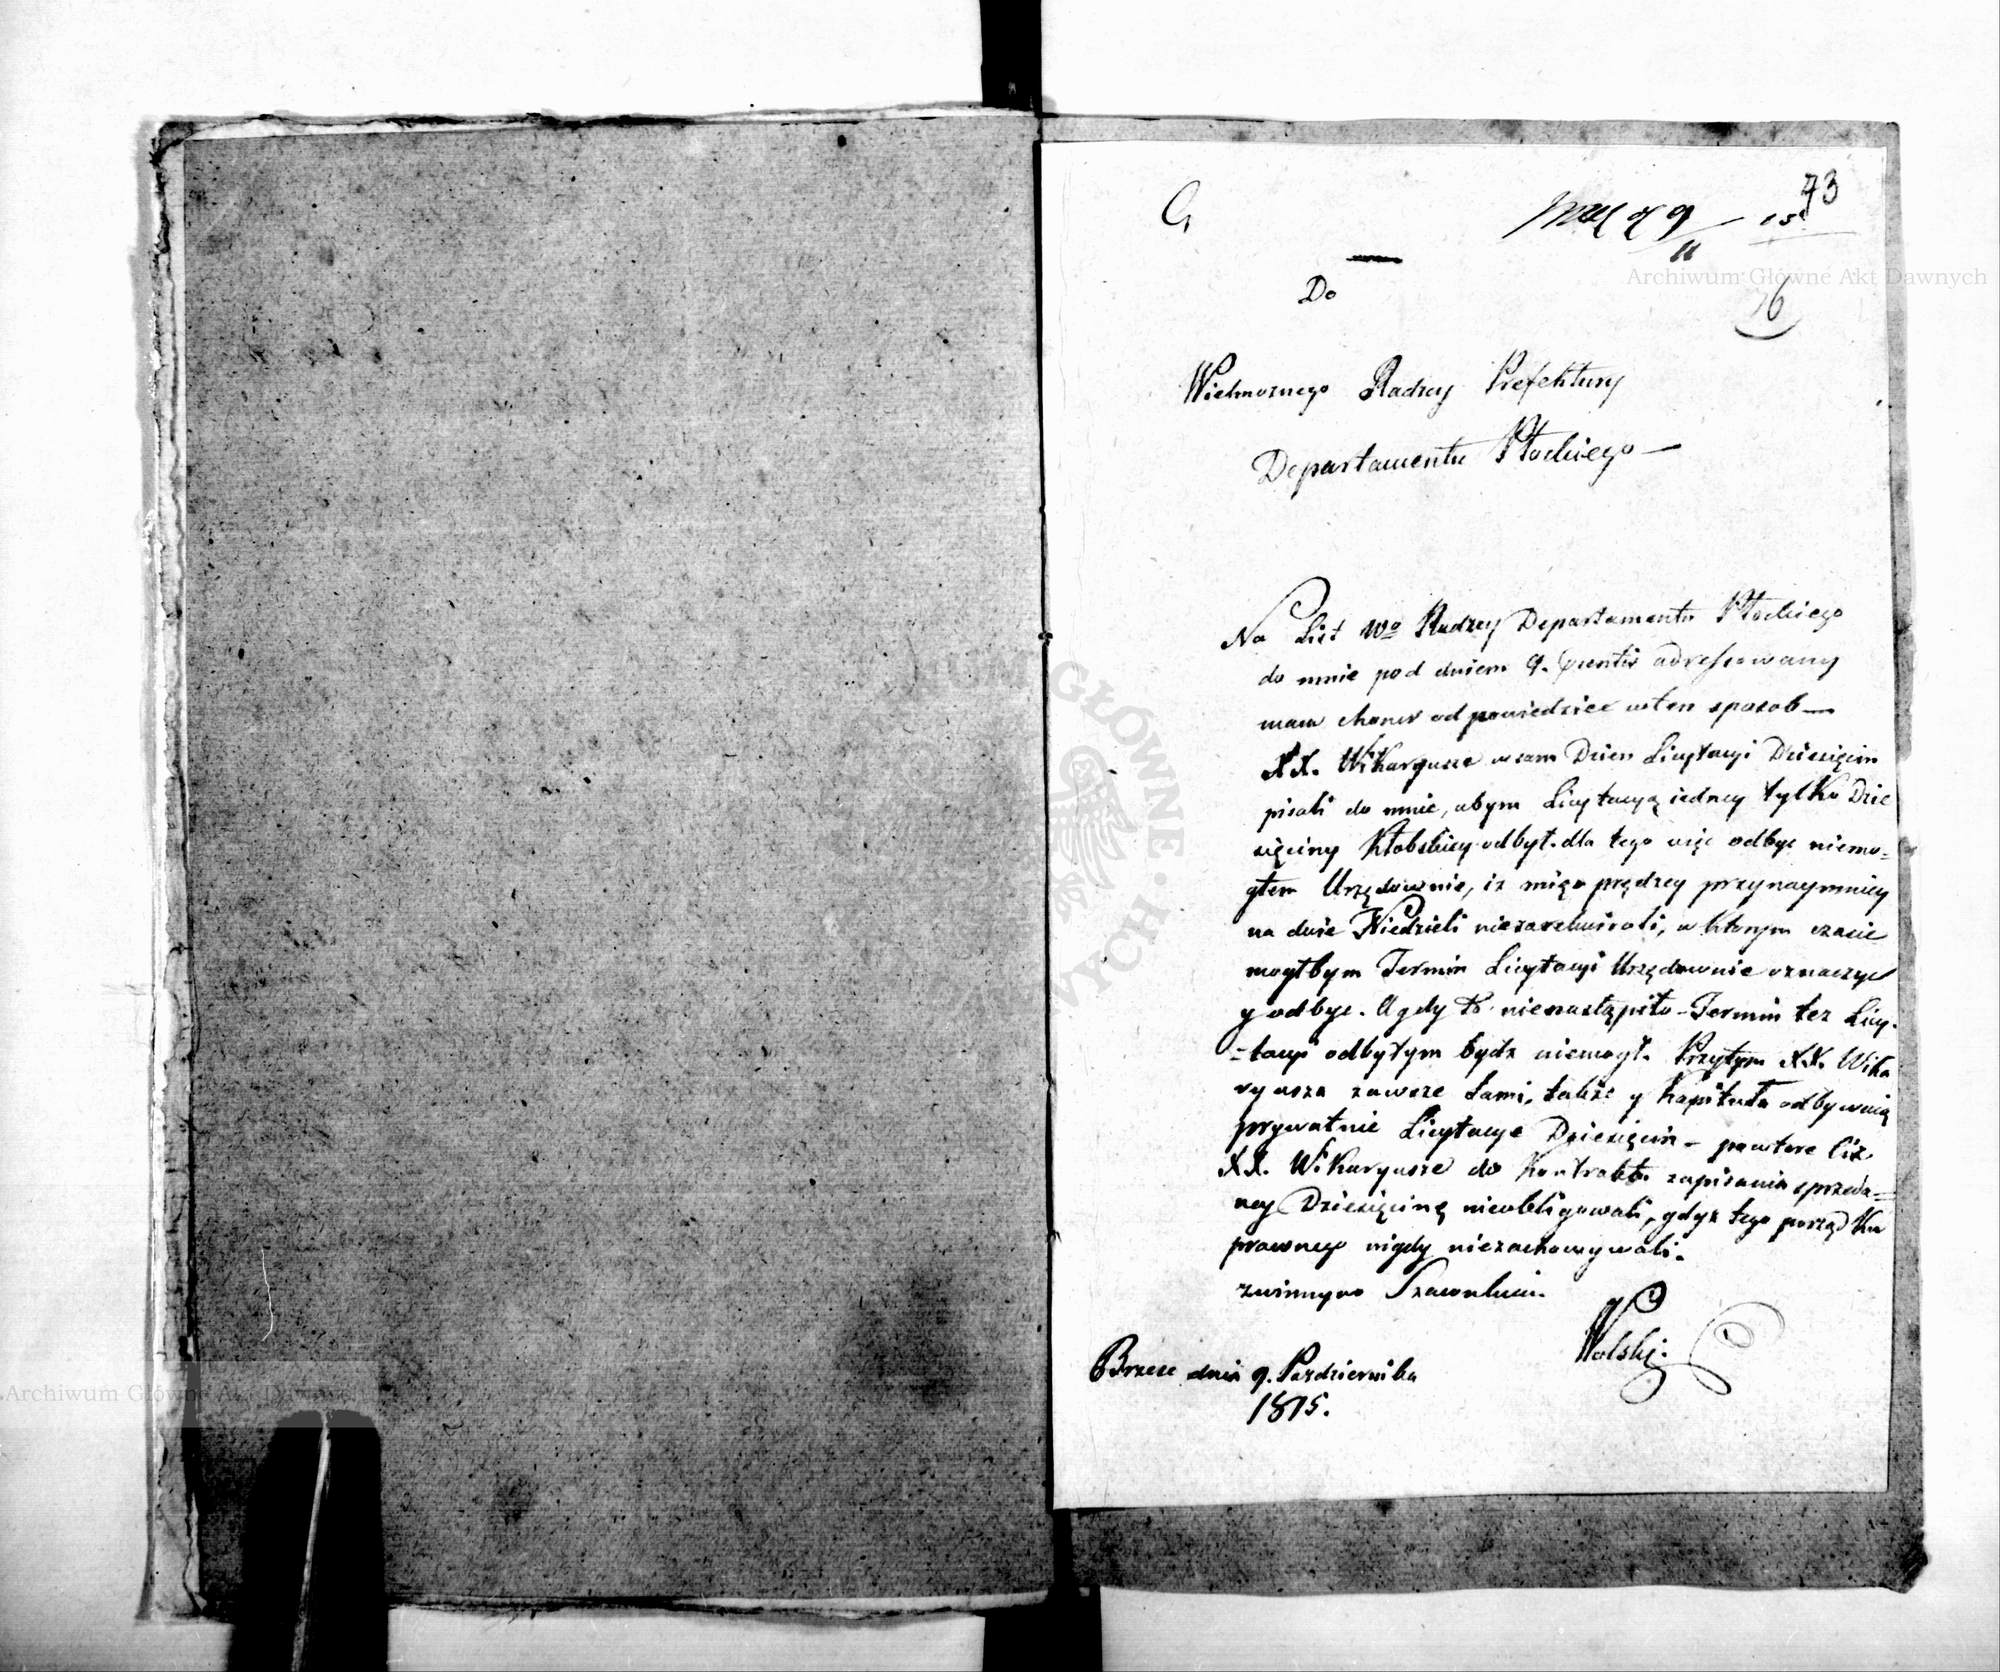 43
15
11
Do
16
Wielmoznego Radzcy Prefektury
Departamentu Płockiego —
Na List Wo Radzcy Departamentu Płockiego
do mnie pod dniem 9. adressowany
mam honor odpowiedziec wten sposob —
XX. Wikaryusze wsam Dzien Licytacyi Dziesięcin
pisali do mnie, abym Licytacyą iedney tylko Dzie
sięciny Kłobskiey odbył. dla tego więc odbyc niemo=
głem Urzędownie, iz mię prędzey przynaymniey
na dwie Niedzieli niezarekwirowali, w ktorym czasie
mogłbym Termin Licytacyi Urzędownie oznaczyc
y odbyc. A gdy to nienastąpiło – Termin tez Licy-
=tacyi odbytym bydz niemogł. Przytym XX. Wika
ryusze zawsze sami, takze y Kapituła odbywaią
prywatnie Licytacye Dziesięcin – powtore Ciz
XX. Wikaryusze do Kontraktu zapisania sprzeda=
ney Dziesięciny nieobligowali, gdyz tego porządku
prawnego nigdy niezachowywali.
zwinnym Szacunkiem.
Wolski.
Brzesc dnia 9. Pazdziernika
1815.
Archiwum Główne Akt Dawnych
Archiwum Główne Akt Dawnych